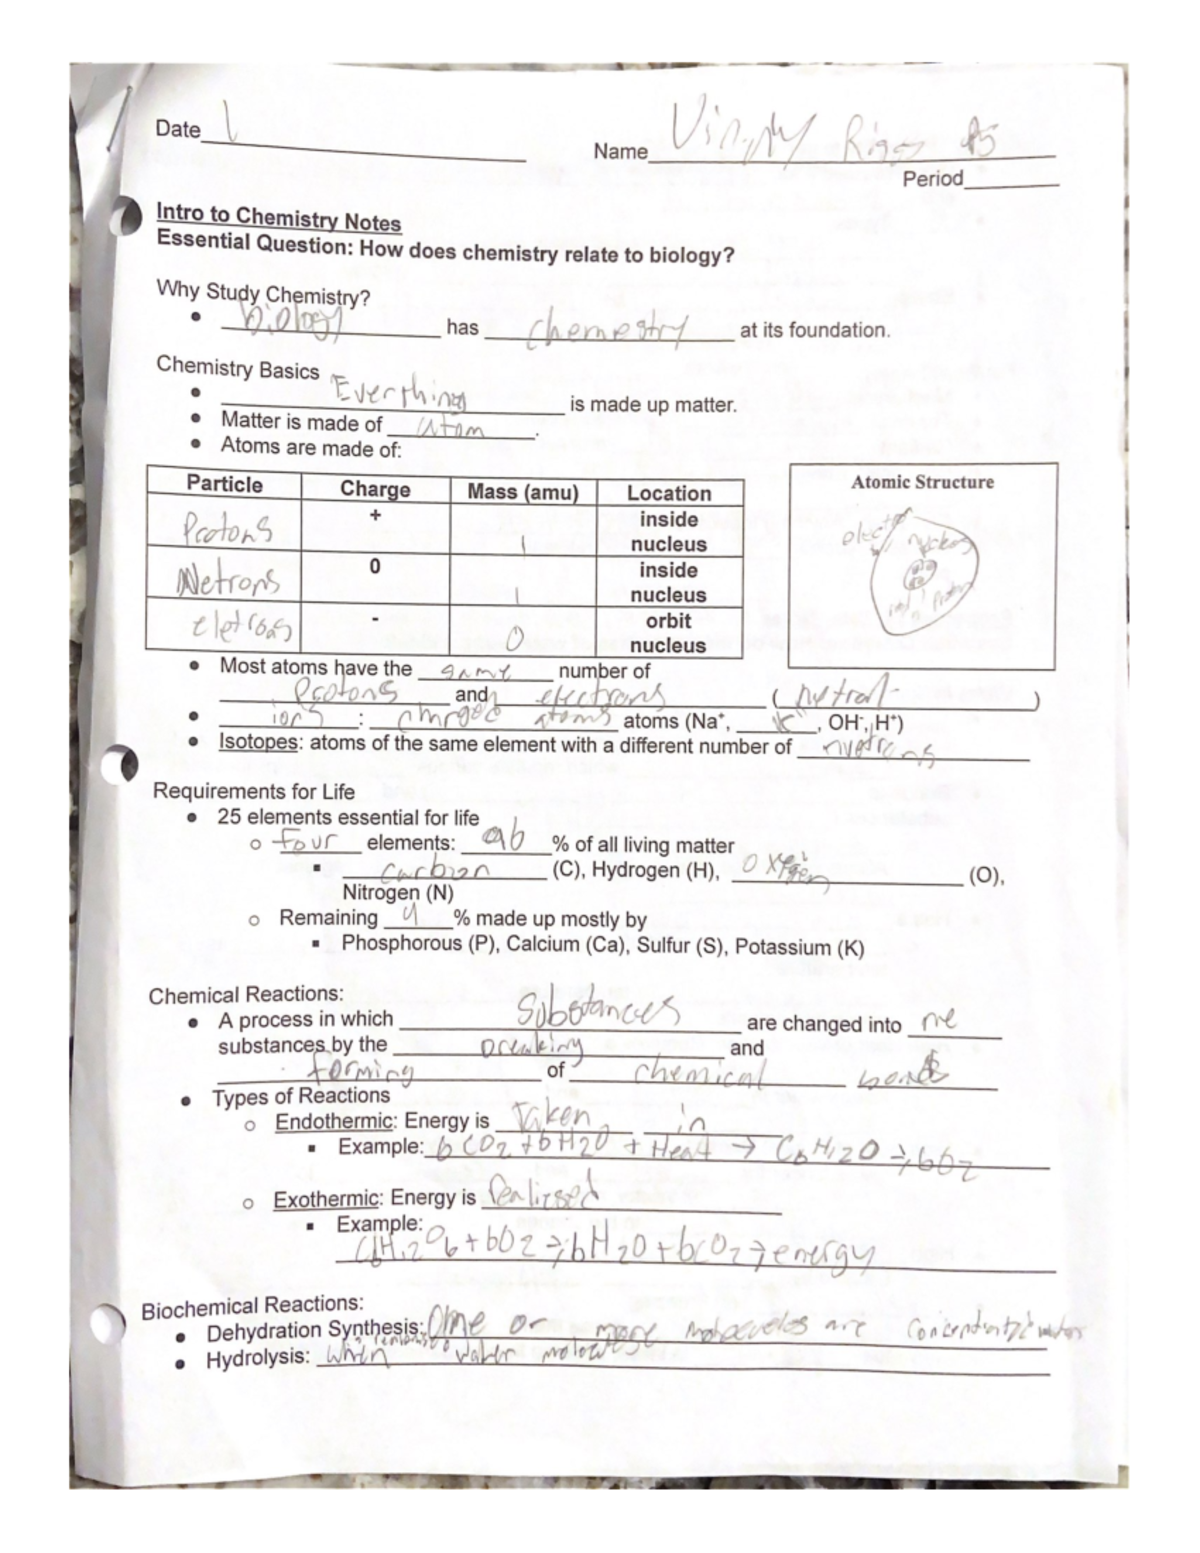 Date
Name
Period
Intro to Chemistry Notes
Essential Question: How does chemistry relate to biology?
Why Study Chemistry?
• biology has chemestry at its foundation.
Chemistry Basics
• Everthing is made up matter.
• Matter is made of atom.
• Atoms are made of:
Particle Charge Mass (amu) Location
Protons + 1 inside nucleus
Netrons 0 1 inside nucleus
eletrons - 0 orbit nucleus
Atomic Structure
• Most atoms have the same number of
Protons and electrons (netral)
• ions: charged atoms atoms (Na⁺, K, OH⁻, H⁺)
• Isotopes: atoms of the same element with a different number of nuetrons
Requirements for Life
• 25 elements essential for life
o four elements: 96 % of all living matter
▪ carbon (C), Hydrogen (H), oxygen (O),
Nitrogen (N)
o Remaining 4 % made up mostly by
▪ Phosphorous (P), Calcium (Ca), Sulfur (S), Potassium (K)
Chemical Reactions:
• A process in which Substances are changed into ne
substances by the breaking and
forming of chemical bonds
• Types of Reactions
o Endothermic: Energy is Taken in
▪ Example: 6CO2 + 6H2O + Heat → C6H12O → 6O2
o Exothermic: Energy is
▪ Example:
C6H12O6 + 6O2 → 6H2O + 6CO2 → energy
Biochemical Reactions:
• Dehydration Synthesis: or more are
• Hydrolysis: When water